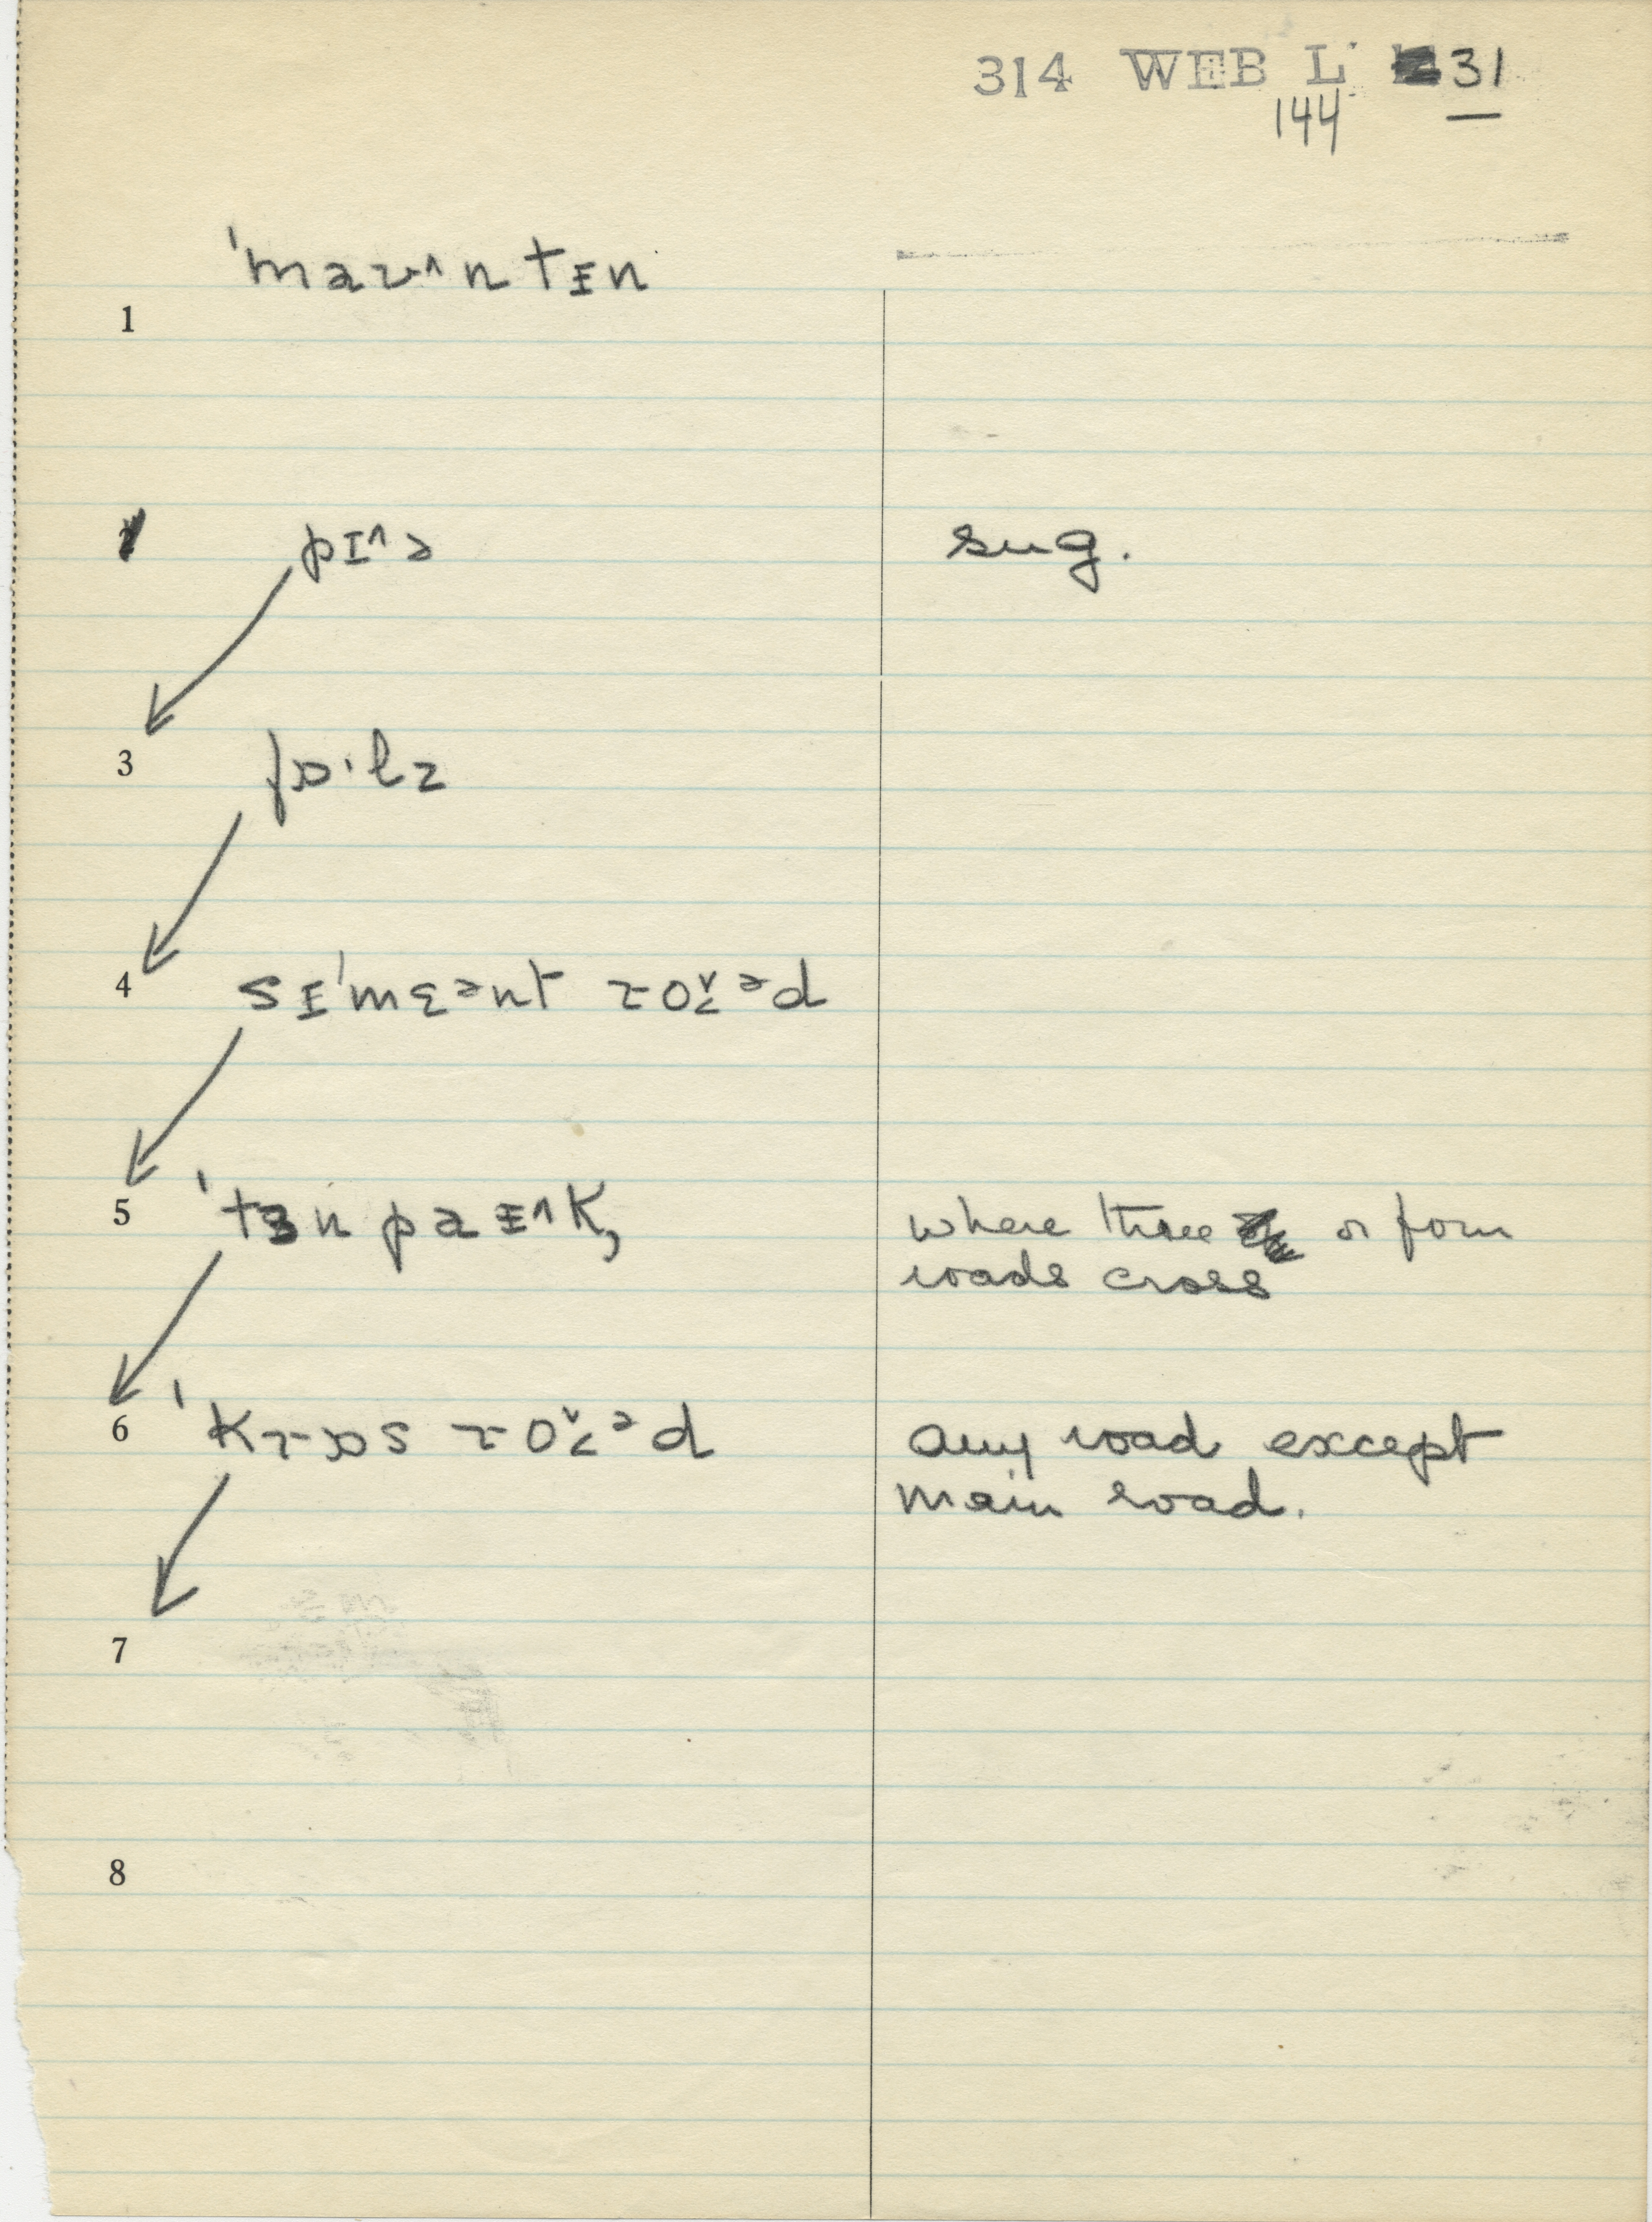 314 WEB L 31
144
ˈmaʊ˄ntɪn
1
pɪ˄ə sug.
3 fɒ·lz
4 sɪˈmɛᵊnt ɹoʊ˅ᵊd
5 ˈtɜnpaɪ˄k, where three or four
roads cross
6 ˈkɹɒs ɹoʊ˅ᵊd any road except
main road.
7
8